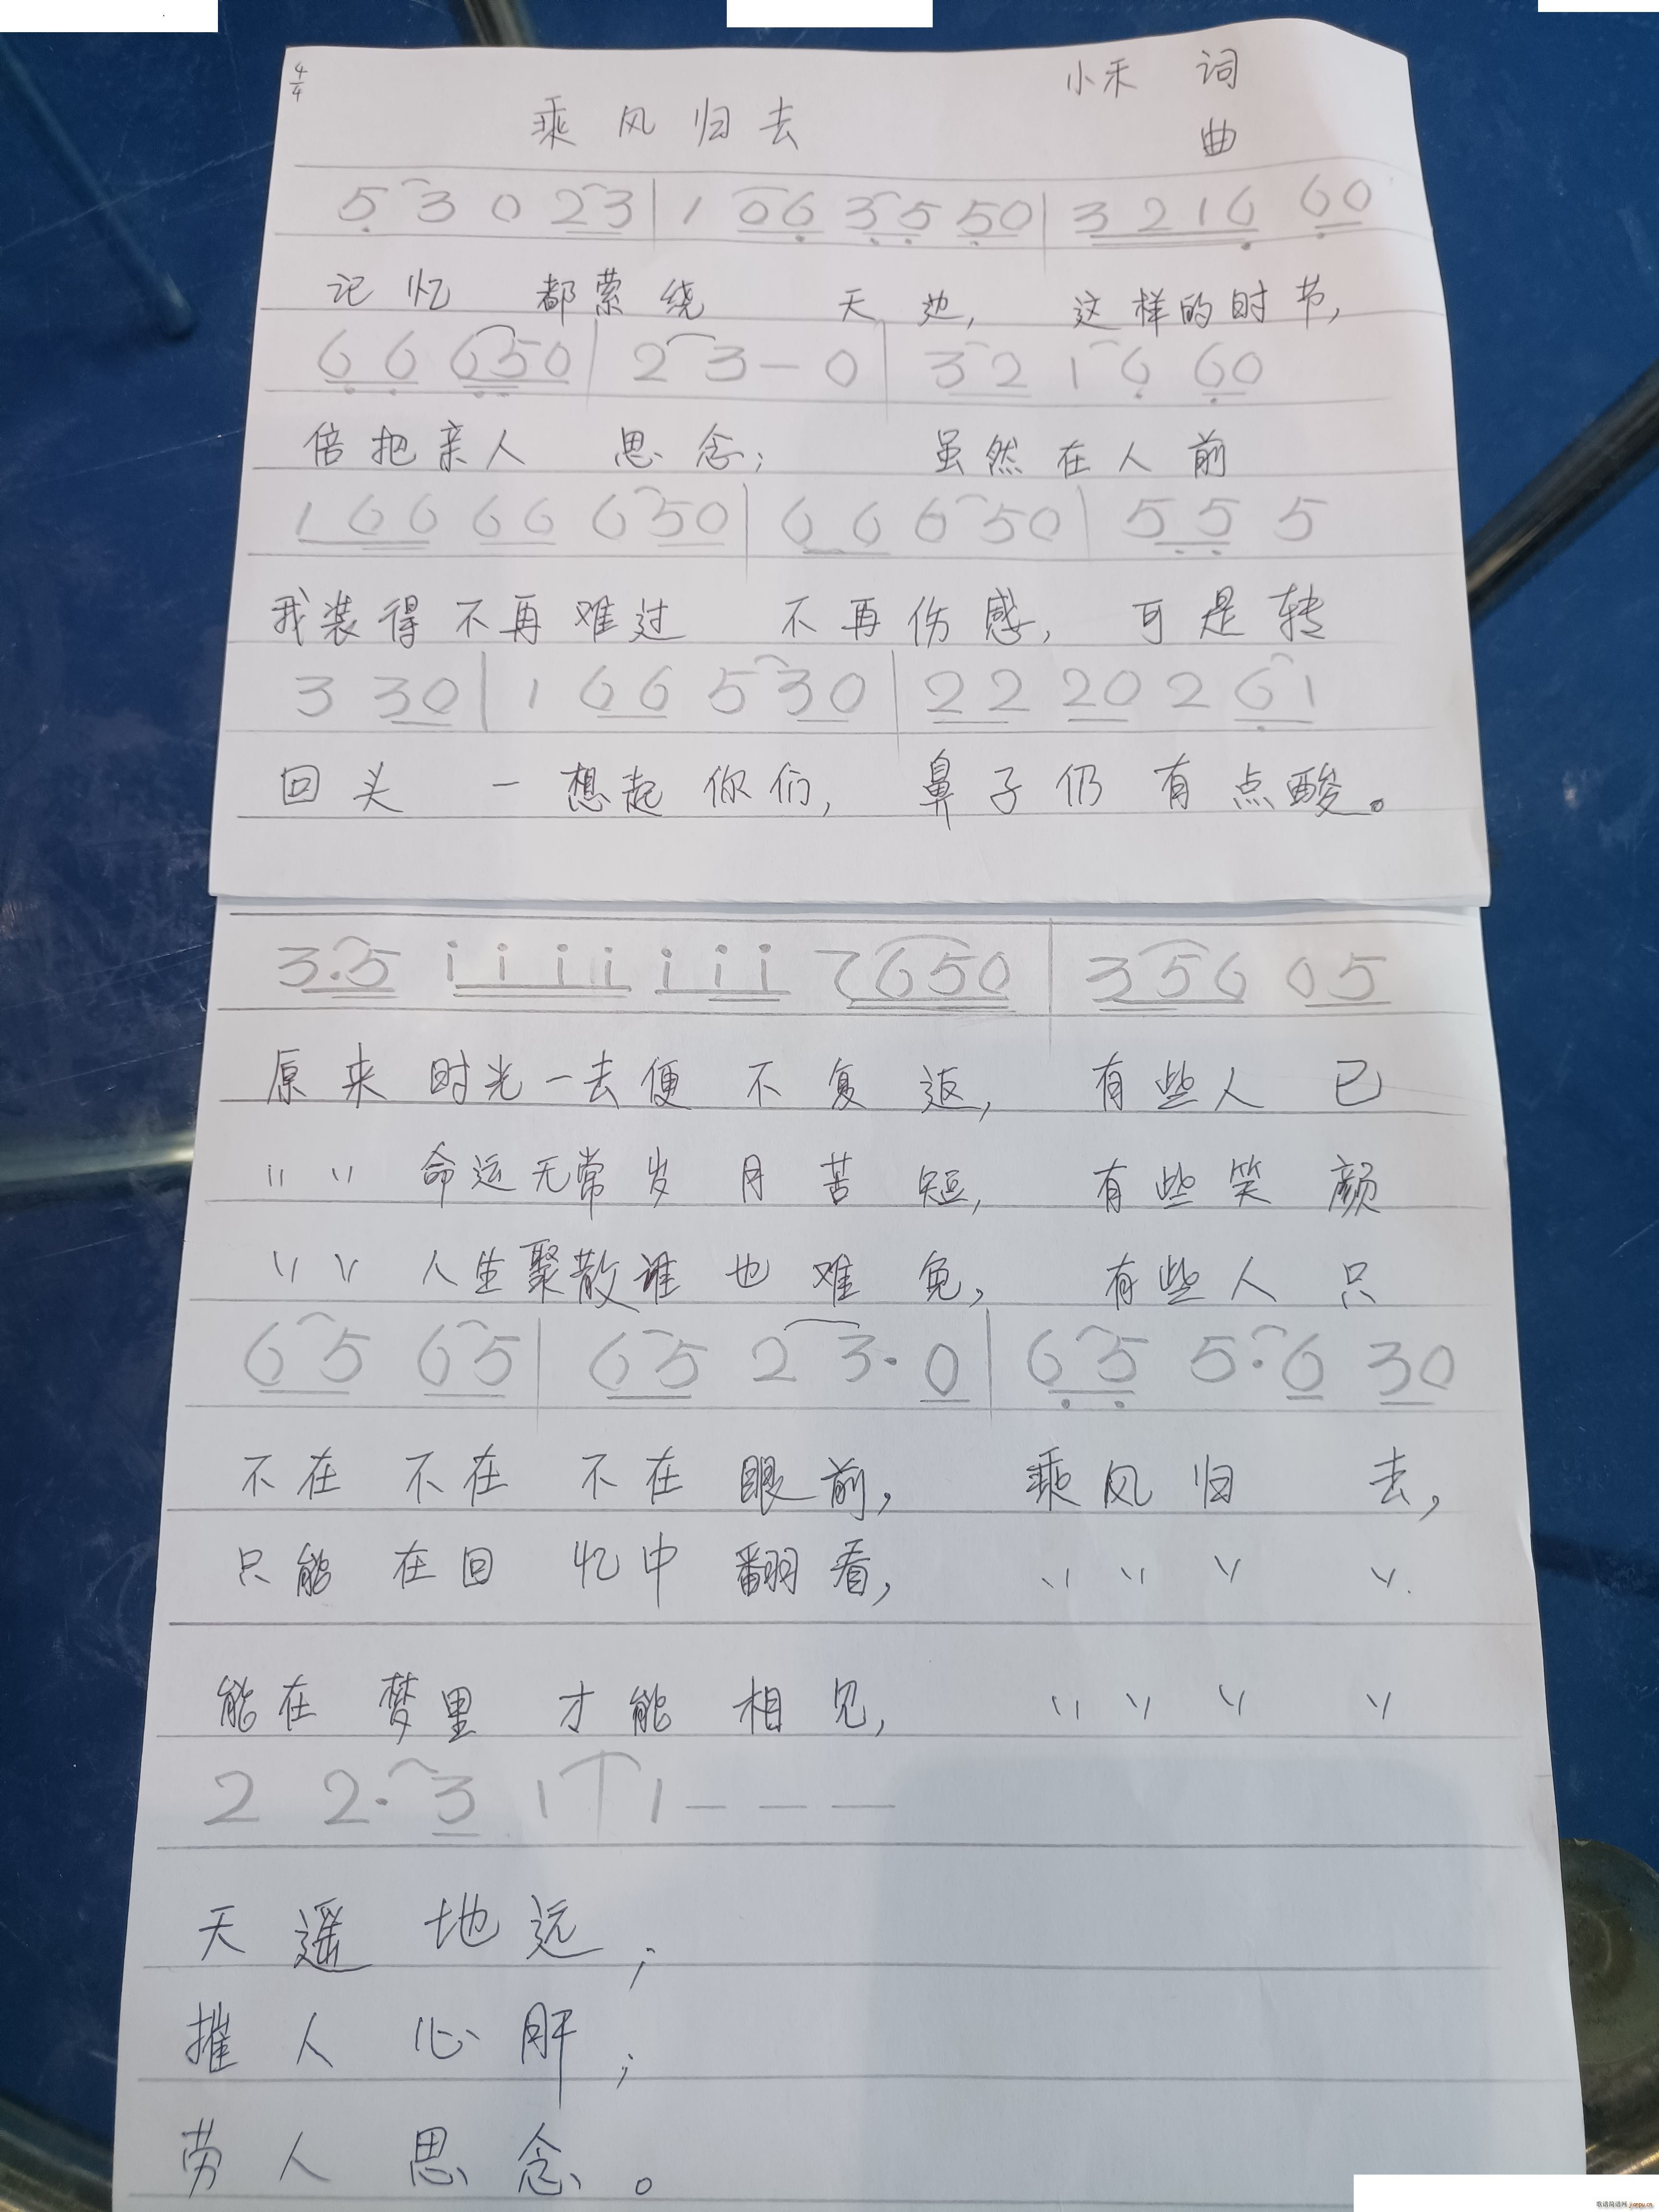 4/4
小禾 词
乘风归去
曲
5 3 0 2 3 | 1 0 6 3 5 5 0 | 3 2 1 6 6 0
记忆 都萦绕 天边, 这样的时节,
6 6 6 5 0 | 2 3 — 0 | 3 2 1 6 6 0
倍把亲人 思念; 虽然在人前
1 6 6 6 6 6 5 0 | 6 6 6 5 0 | 5 5 5
我装得不再难过 不再伤感, 可是转
3 3 0 | 1 6 6 5 3 0 | 2 2 2 0 2 6 1
回头 一想起你们, 鼻子仍有点酸。
3. 5 i i i i i i i 7 6 5 0 | 3 5 6 0 5
原来时光一去便不复返, 有些人已
〃 〃 命运无常岁月苦短, 有些笑颜
〃 〃 人生聚散谁也难免, 有些人只
6 5 6 5 | 6 5 2 3 . 0 | 6 5 5 . 6 3 0
不在不在不在眼前, 乘风归去,
只能在回忆中翻看, 〃 〃 〃 〃
能在梦里才能相见, 〃 〃 〃 〃
2 2 . 3 1 | 1 — — —
天遥地远;
摧人心肝;
劳人思念。
歌谱简谱网 jianpu.cn